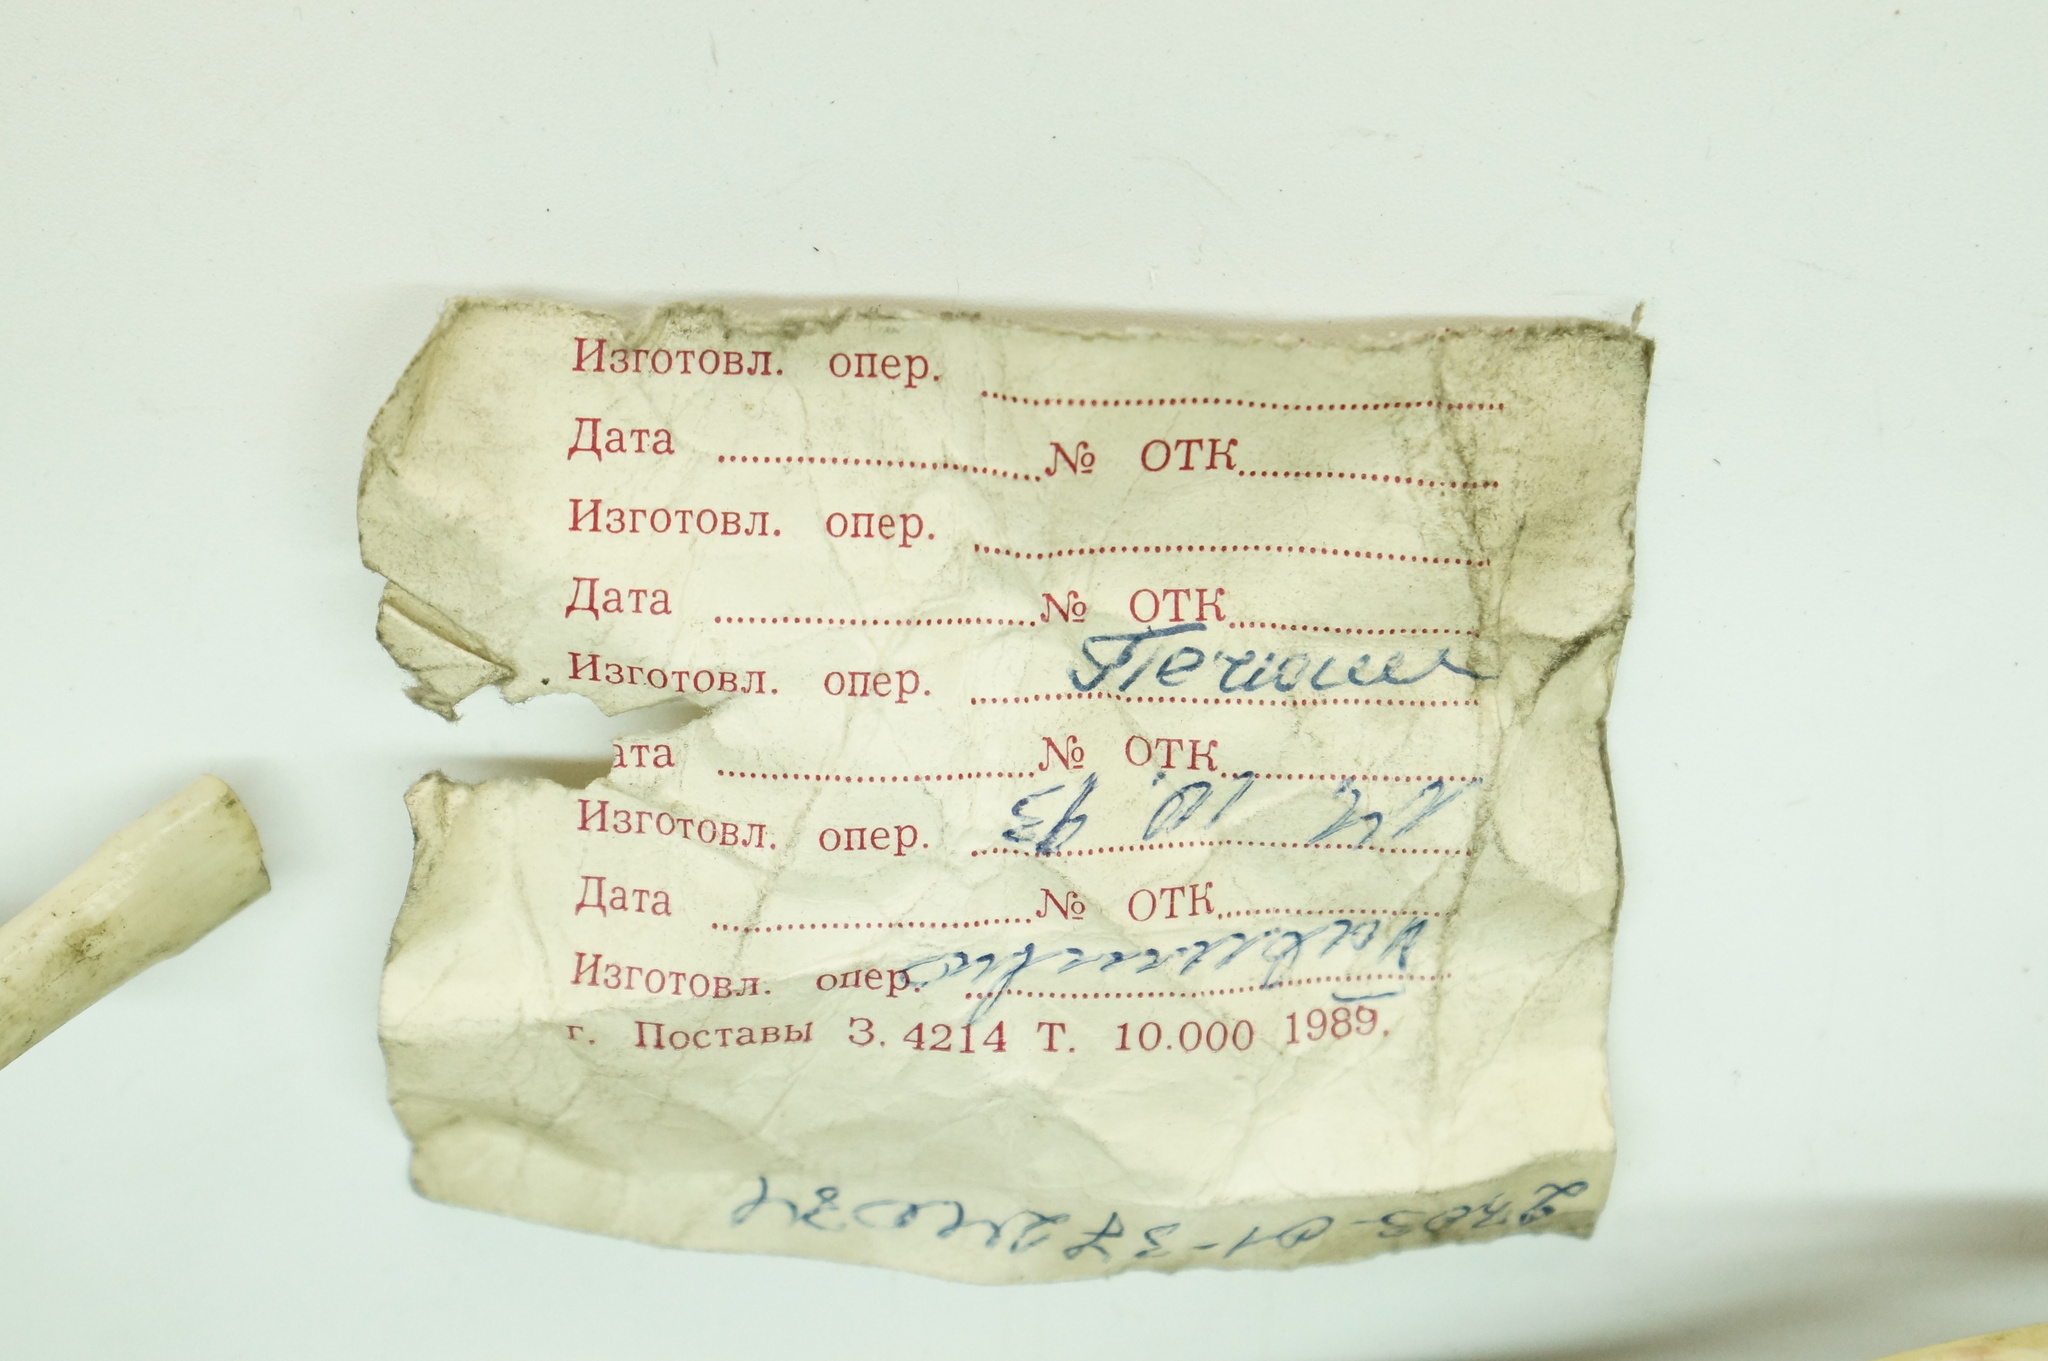 Изготовл. опер. ........................
Дата ........................ № ОТК ........................
Изготовл. опер. ........................
Дата ........................ № ОТК ........................
Изготовл. опер. ........................
ата ........................ № ОТК ........................
Изготовл. опер. ........................
14. 10. 93
Дата ........................ № ОТК ........................
Изготовл. опер. ........................
г. Поставы З. 4214 Т. 10.000 1989.